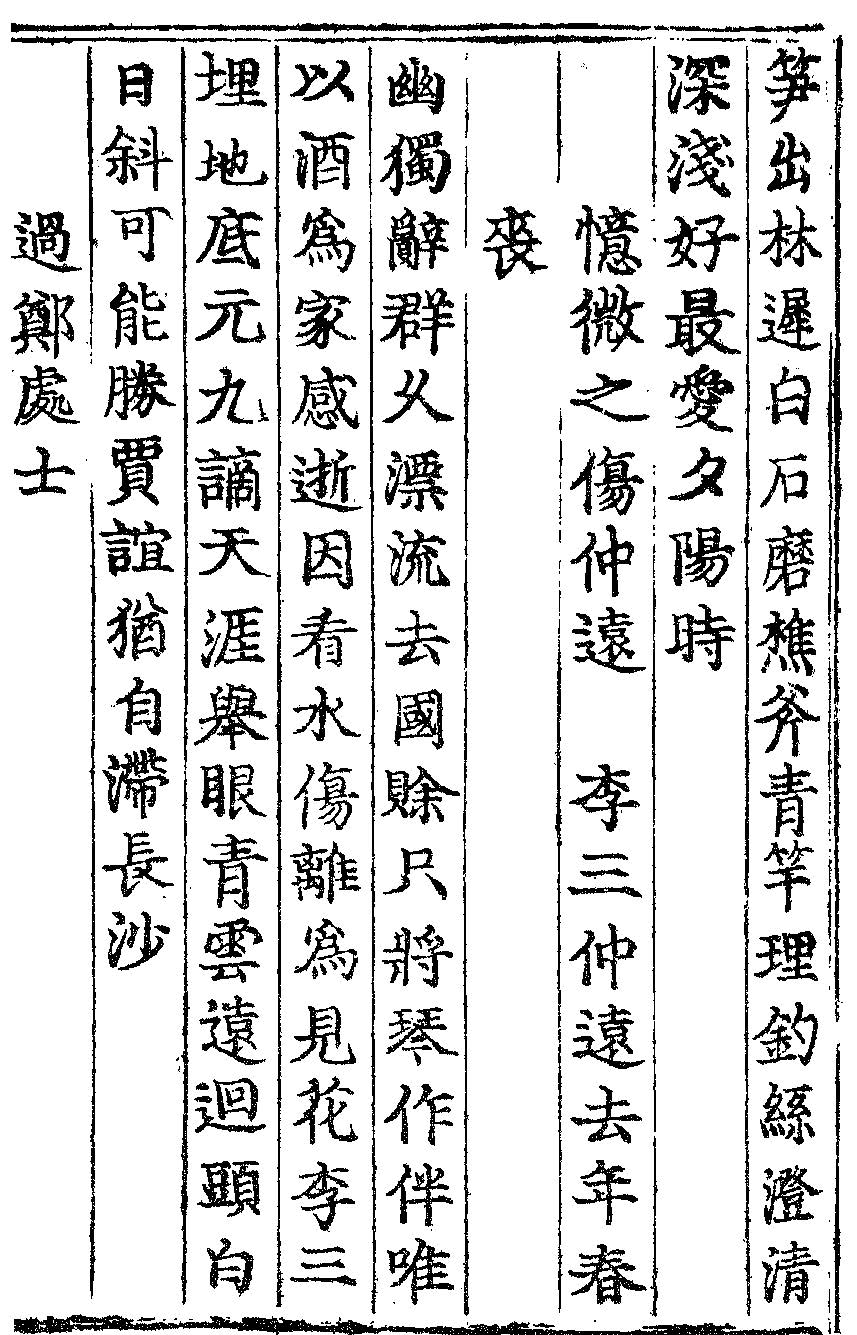 笋出林遲白石磨樵斧青竿理釣絲澄清
深淺好最愛夕陽時
憶微之傷仲遠　李三仲遠去年春
喪
幽獨辭群乆漂流去國賒只將琴作伴唯
以酒爲家感逝因看水傷離爲見花李三
埋地底元九謫天涯舉眼青雲遠迴頭白
日斜可能勝賈誼猶自滯長沙
過鄭處士